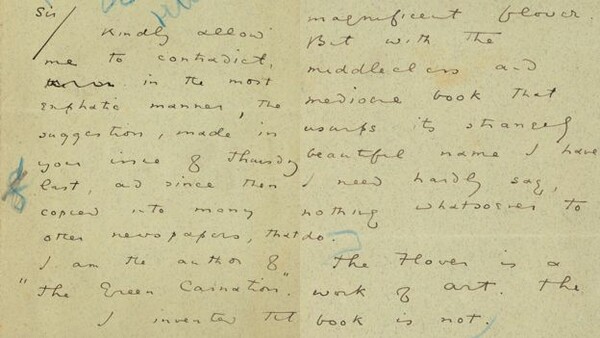 Sir
Kindly allow
me to contradict,
in the most
emphatic manner, the
suggestion, made in
your issue of Thursday
last, and since then
copied into many
other newspapers, that
I am the author of
"The Green Carnation".
I invented that
magnificent flower.
But with the
middleclass and
mediocre book that
usurps its strangely
beautiful name I have,
I need hardly say,
nothing whatsoever to
do.
The Flower is a
work of Art. The
book is not.